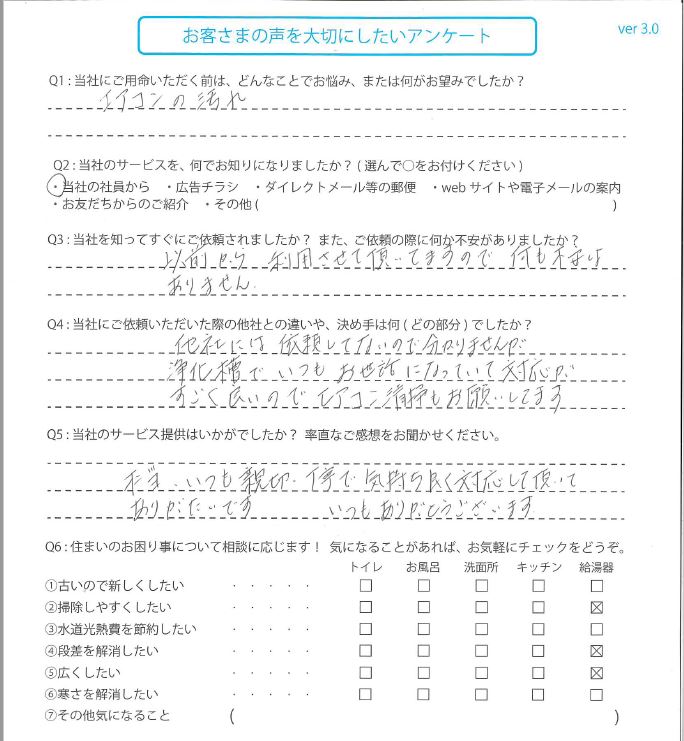 お客さまの声を大切にしたいアンケート
ver 3.0
Q1 : 当社にご用命いただく前は、どんなことでお悩み、または何がお望みでしたか？
エアコンの汚れ
Q2 : 当社のサービスを、何でお知りになりましたか？ ( 選んで○をお付けください )
・当社の社員から ・広告チラシ ・ダイレクトメール等の郵便 ・web サイトや電子メールの案内
・お友だちからのご紹介 ・その他 ( )
Q3 : 当社を知ってすぐにご依頼されましたか？ また、ご依頼の際に何か不安がありましたか？
以前から 利用させて頂いてますので 何も不安は
ありません.
Q4 : 当社にご依頼いただいた際の他社との違いや、決め手は何 ( どの部分 ) でしたか？
他社には 依頼してないので分かりませんが
浄化槽で いつも お世話になっていて 対応が
すごく良いので エアコン清掃もお願いしてます
Q5 : 当社のサービス提供はいかがでしたか？ 率直なご感想をお聞かせください。
いつも 親切、丁寧で 気持ち良く対応して頂いて
ありがたいです いつもありがとうございます
Q6 : 住まいのお困り事について相談に応じます！ 気になることがあれば、お気軽にチェックをどうぞ。
トイレ お風呂 洗面所 キッチン 給湯器
①古いので新しくしたい ・・・・・ □ □ □ □ □
②掃除しやすくしたい ・・・・・ □ □ □ □ ☒
③水道光熱費を節約したい ・・・・・ □ □ □ □ □
④段差を解消したい ・・・・・ □ □ □ □ ☒
⑤広くしたい ・・・・・ □ □ □ □ ☒
⑥寒さを解消したい ・・・・・ □ □ □ □ □
⑦その他気になること ( )